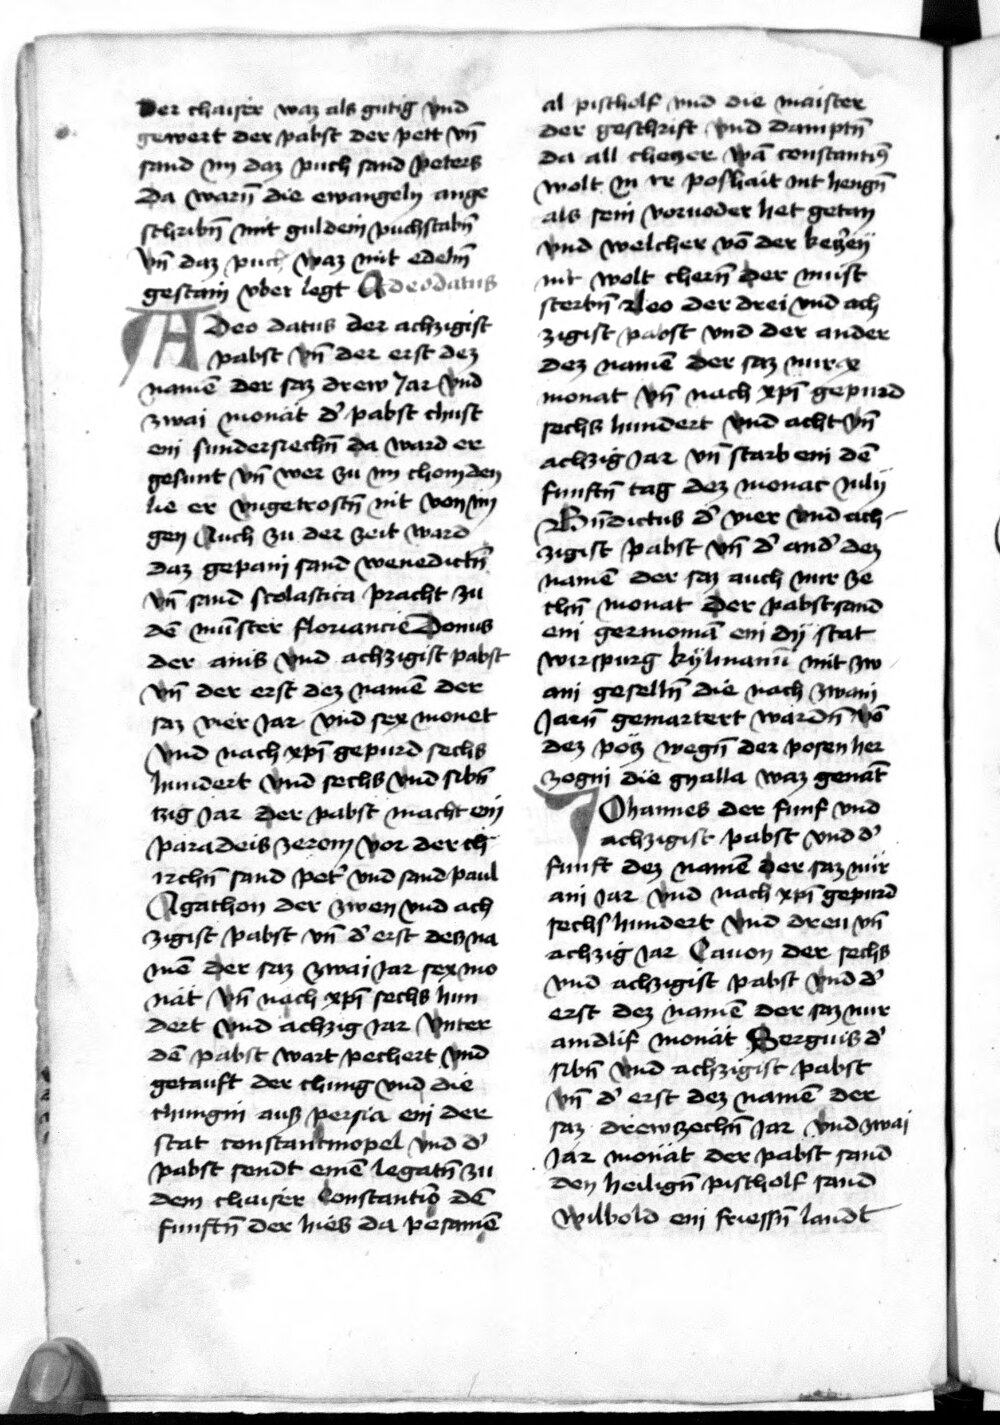 Der chaiser waz als gutig vnd
gewert der pabst der pett vn̄
sand im daz puch sand peters
Da warn̄ die ewangely ange
schribn̄ mit guldein puchstabn̄
vn̄ daz puch waz mit edeln̄
gestain vber legt Adeodatus
ADeo datus der achzigist
pabst vn̄ der erst dez
namē der saz drew Jar vnd
zwai monat d' pabst chust
ein sundersiechn̄ da ward er
gesunt vn̄ wer zu im chom den
lie er vngetrostn̄ nit von im
gen Auch zu der zeit ward
daz gepain sand wenedictn̄
vn̄ sand scolastica pracht zu
dē mūster floriancīē Donus
der ains vnd achzigist pabst
vn̄ der erst dez namē der
saz vier Jar vnd sex monet
vnd nach xp̄i gepurd sechs
hundert vnd sechs vnd sibn̄
tzig Jar der pabst macht ein
paradeis zerom vor der ch
irchn̄ sand pet' vnd sand paul
Agathon der zwen vnd ach
zigist pabst vn̄ d' erst des na
mē der saz zwai Jar sex mo
nät vn̄ nach xp̄i sechs hun
dert vnd achzig Jar vnter
dē pabst wart pechert vnd
getauft der chung vnd die
chungin auß persia ein der
stat constantinopel vnd d'
pabst sendt einē legatn̄ zu
dem chaiser Constantio dē
funftn̄ der hies da pesamē
al pischolf vnd die maister
der geschrift vnd damptn̄
da all checzer wā constantiꝰ
wolt in ir poshait nit hengn̄
als sein voruoder het getan
vnd welcher vō der keczeÿ
nit wolt chern̄ der muist
sterbn̄ Leo der drei vnd ach
zigist pabst vnd der ander
dez namē der saz nur x
monat vn̄ nach xp̄i gepurd
sechs hundert vnd acht vn̄
achzig Jar vn̄ starb ein dē
funftn̄ tag dez monat Julij
Bn̄dictus d' vier vnd ach
zigist pabst vn̄ d' and' dez
namē der saz auch nur ze
chn̄ monat Der pabst sand
ein germoniā ein dÿ stat
wirspurg kÿlinanū mit zw
ain geselln̄ die nach zwain
Jarn̄ gemartert wardn̄ vō
dez pötz wegn̄ der posen her
zogin die gyalla waz genāt
JOhannes der funf vnd
achzigist pabst vnd d'
funft dez namē der saz nür
ain Jar vnd nach xp̄i gepurd
sechs hundert vnd dreu vn̄
achzig Jar Canon der sechs
vnd achzigist pabst vnd d'
erst dez namē der saz nur
aindlif monät Serguis d'
sibn̄ vnd achzigist pabst
vn̄ d' erst dez namē der
saz drewzechn̄ Jar vnd zwai
Jar monät der pabst sand
den heilign̄ pischolf sand
wilbold ein friessn̄ landt